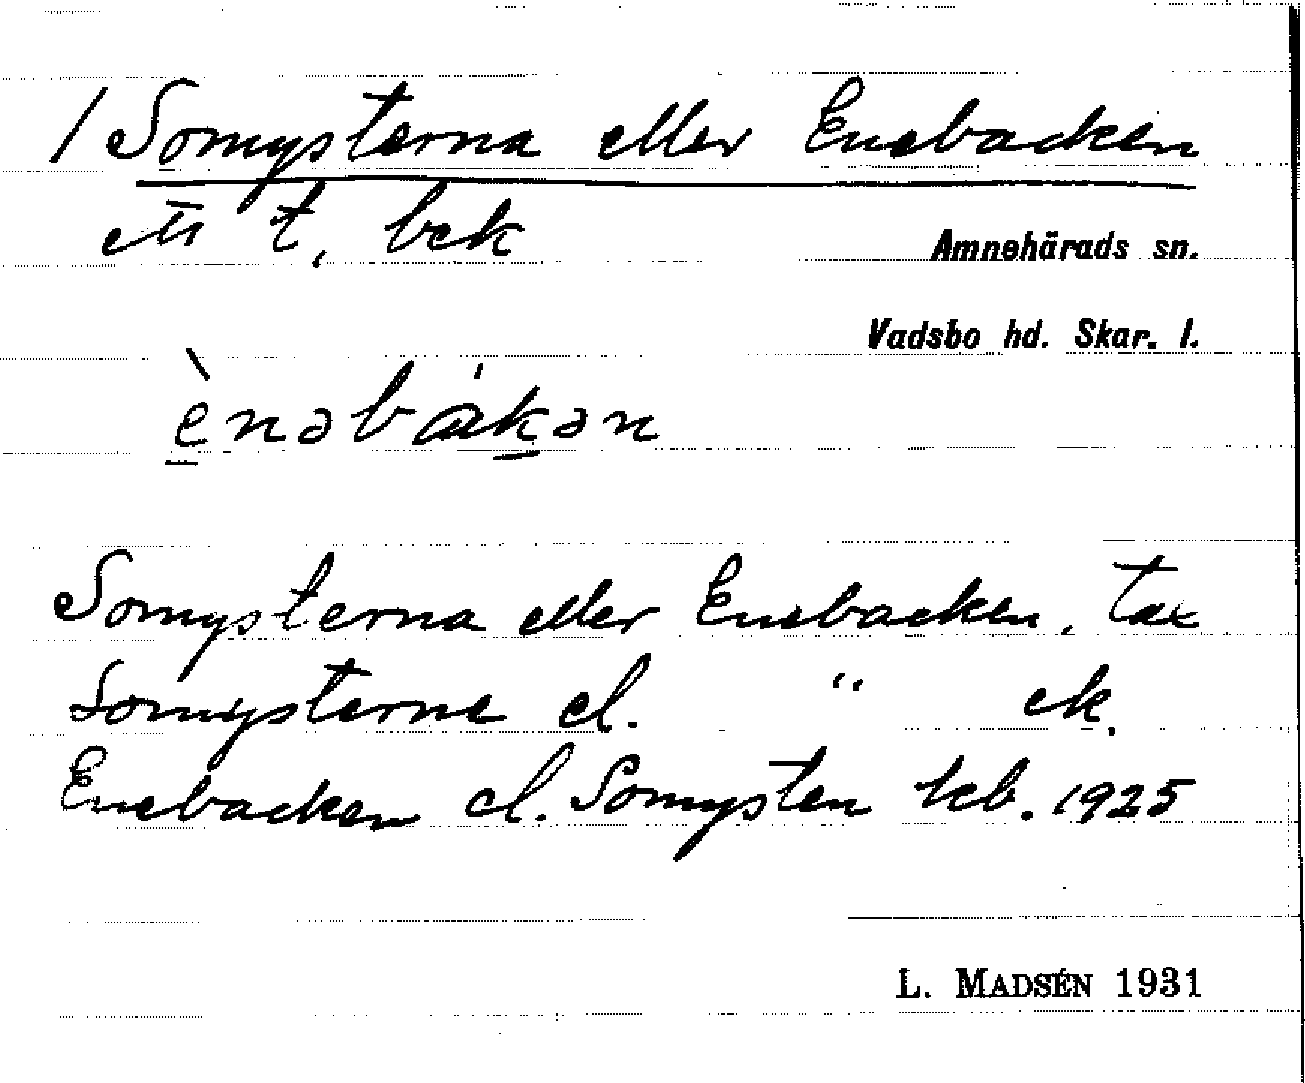 / Somysterna eller Enebacken
ett t, bek
Amnehärads sn.
Vadsbo hd. Skar. l.
ènəbákən
Somysterna eller Enebacken, tax
Somysterna el. " ek.
Enebacken el. Somysten kb. 1925
L. MADSÉN 1931